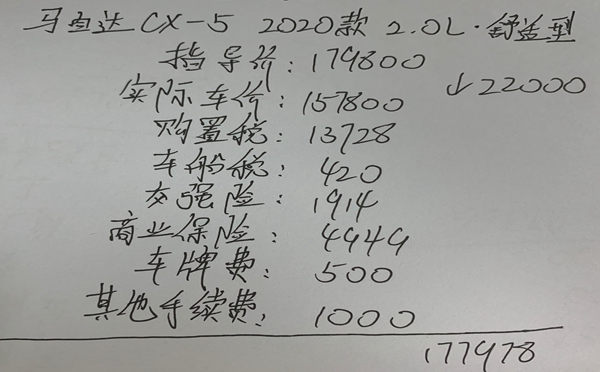 马自达 CX-5 2020款 2.0L·舒适型
指导价: 179800
实际车价: 157800 ↓22000
购置税: 13728
车船税: 420
交强险: 1914
商业保险: 4949
车牌费: 500
其他手续费: 1000
177978